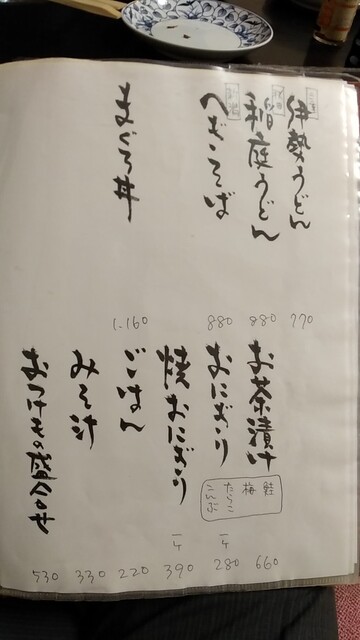 伊勢うどん
770
稲庭うどん
880
へぎそば
880
まぐろ丼
1.160
お茶漬け
660
おにぎり
鮭
梅
たらこ
こんぶ
一ケ
280
焼おにぎり
一ケ
390
ごはん
220
みそ汁
330
おつけもの盛合わせ
530